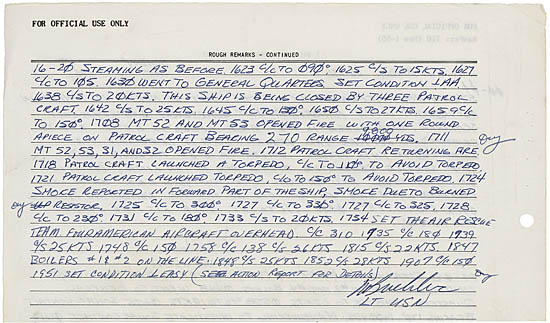 FOR OFFICIAL USE ONLY
ROUGH REMARKS - CONTINUED
16-20 STEAMING AS BEFORE. 1623 C/C TO 090°. 1625 C/S TO 15 KTS. 1627
C/C TO 105. 1630 WENT TO GENERAL QUARTERS SET CONDITION 1AA.
1638 C/S TO 20 KTS. THIS SHIP IS BEING CLOSED BY THREE PATROL
CRAFT. 1642 C/S TO 25 KTS. 1645 C/C TO 130°. 1650 C/S TO 27 KTS. 1659 C/C
TO 150°. 1708 MT 52 AND MT 53 OPENED FIRE WITH ONE ROUND
APIECE ON PATROL CRAFT BEARING 270 RANGE 9800 YDS. 1711
MT 52, 53, 31, AND 32 OPENED FIRE. 1712 PATROL CRAFT RETURNING FIRE
1718 PATROL CRAFT LAUNCHED A TORPEDO, C/C TO 110° TO AVOID TORPEDO
1721 PATROL CRAFT LAUNCHED TORPEDO, C/C TO 150° TO AVOID TORPEDO, 1724
SMOKE REPORTED IN FORWARD PART OF THE SHIP, SMOKE DUE TO BURNED
UP RESISTOR, 1725 C/C TO 300° 1727 C/C TO 330° 1727 C/C TO 325, 1728
C/C TO 230° 1731 C/C TO 180° 1733 C/S TO 20 KTS, 1734 SET THE AIR RESCUE
TEAM. FOUR AMERICAN AIRCRAFT OVERHEAD. C/C 310 1735 C/C 180 1739
C/S 25 KTS 1748 C/C 150 1758 C/C 138 C/S 26 KTS 1815 C/S 22 KTS. 1847
BOILERS #1 & #2 ON THE LINE. 1848 C/S 25 KTS 1852 C/S 28 KTS 1907 C/C 150
1951 SET CONDITION I EASY (SEE ACTION REPORT FOR DETAILS)
LT USN